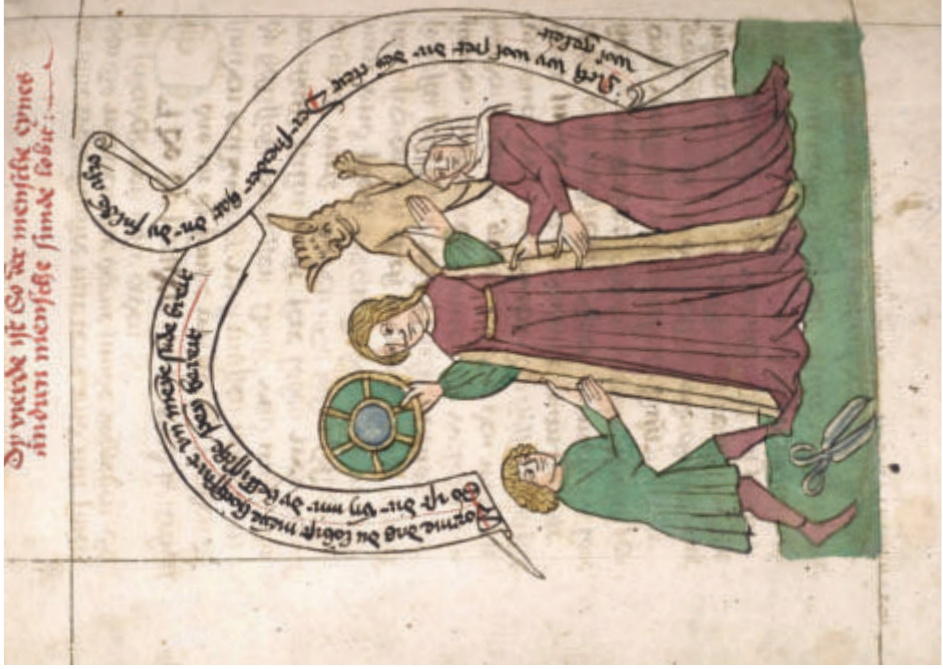 Dy vierde ist So der mensche eynes
andirn mensche sunde lobit
Sich wy wol stet dir das cleit
Der sneider hat dir dy falde
wol geleit
Dorvme das du lobist meyne hoffart vnd meyne sunde breit
So ist dir dy hellissche peyn bereit